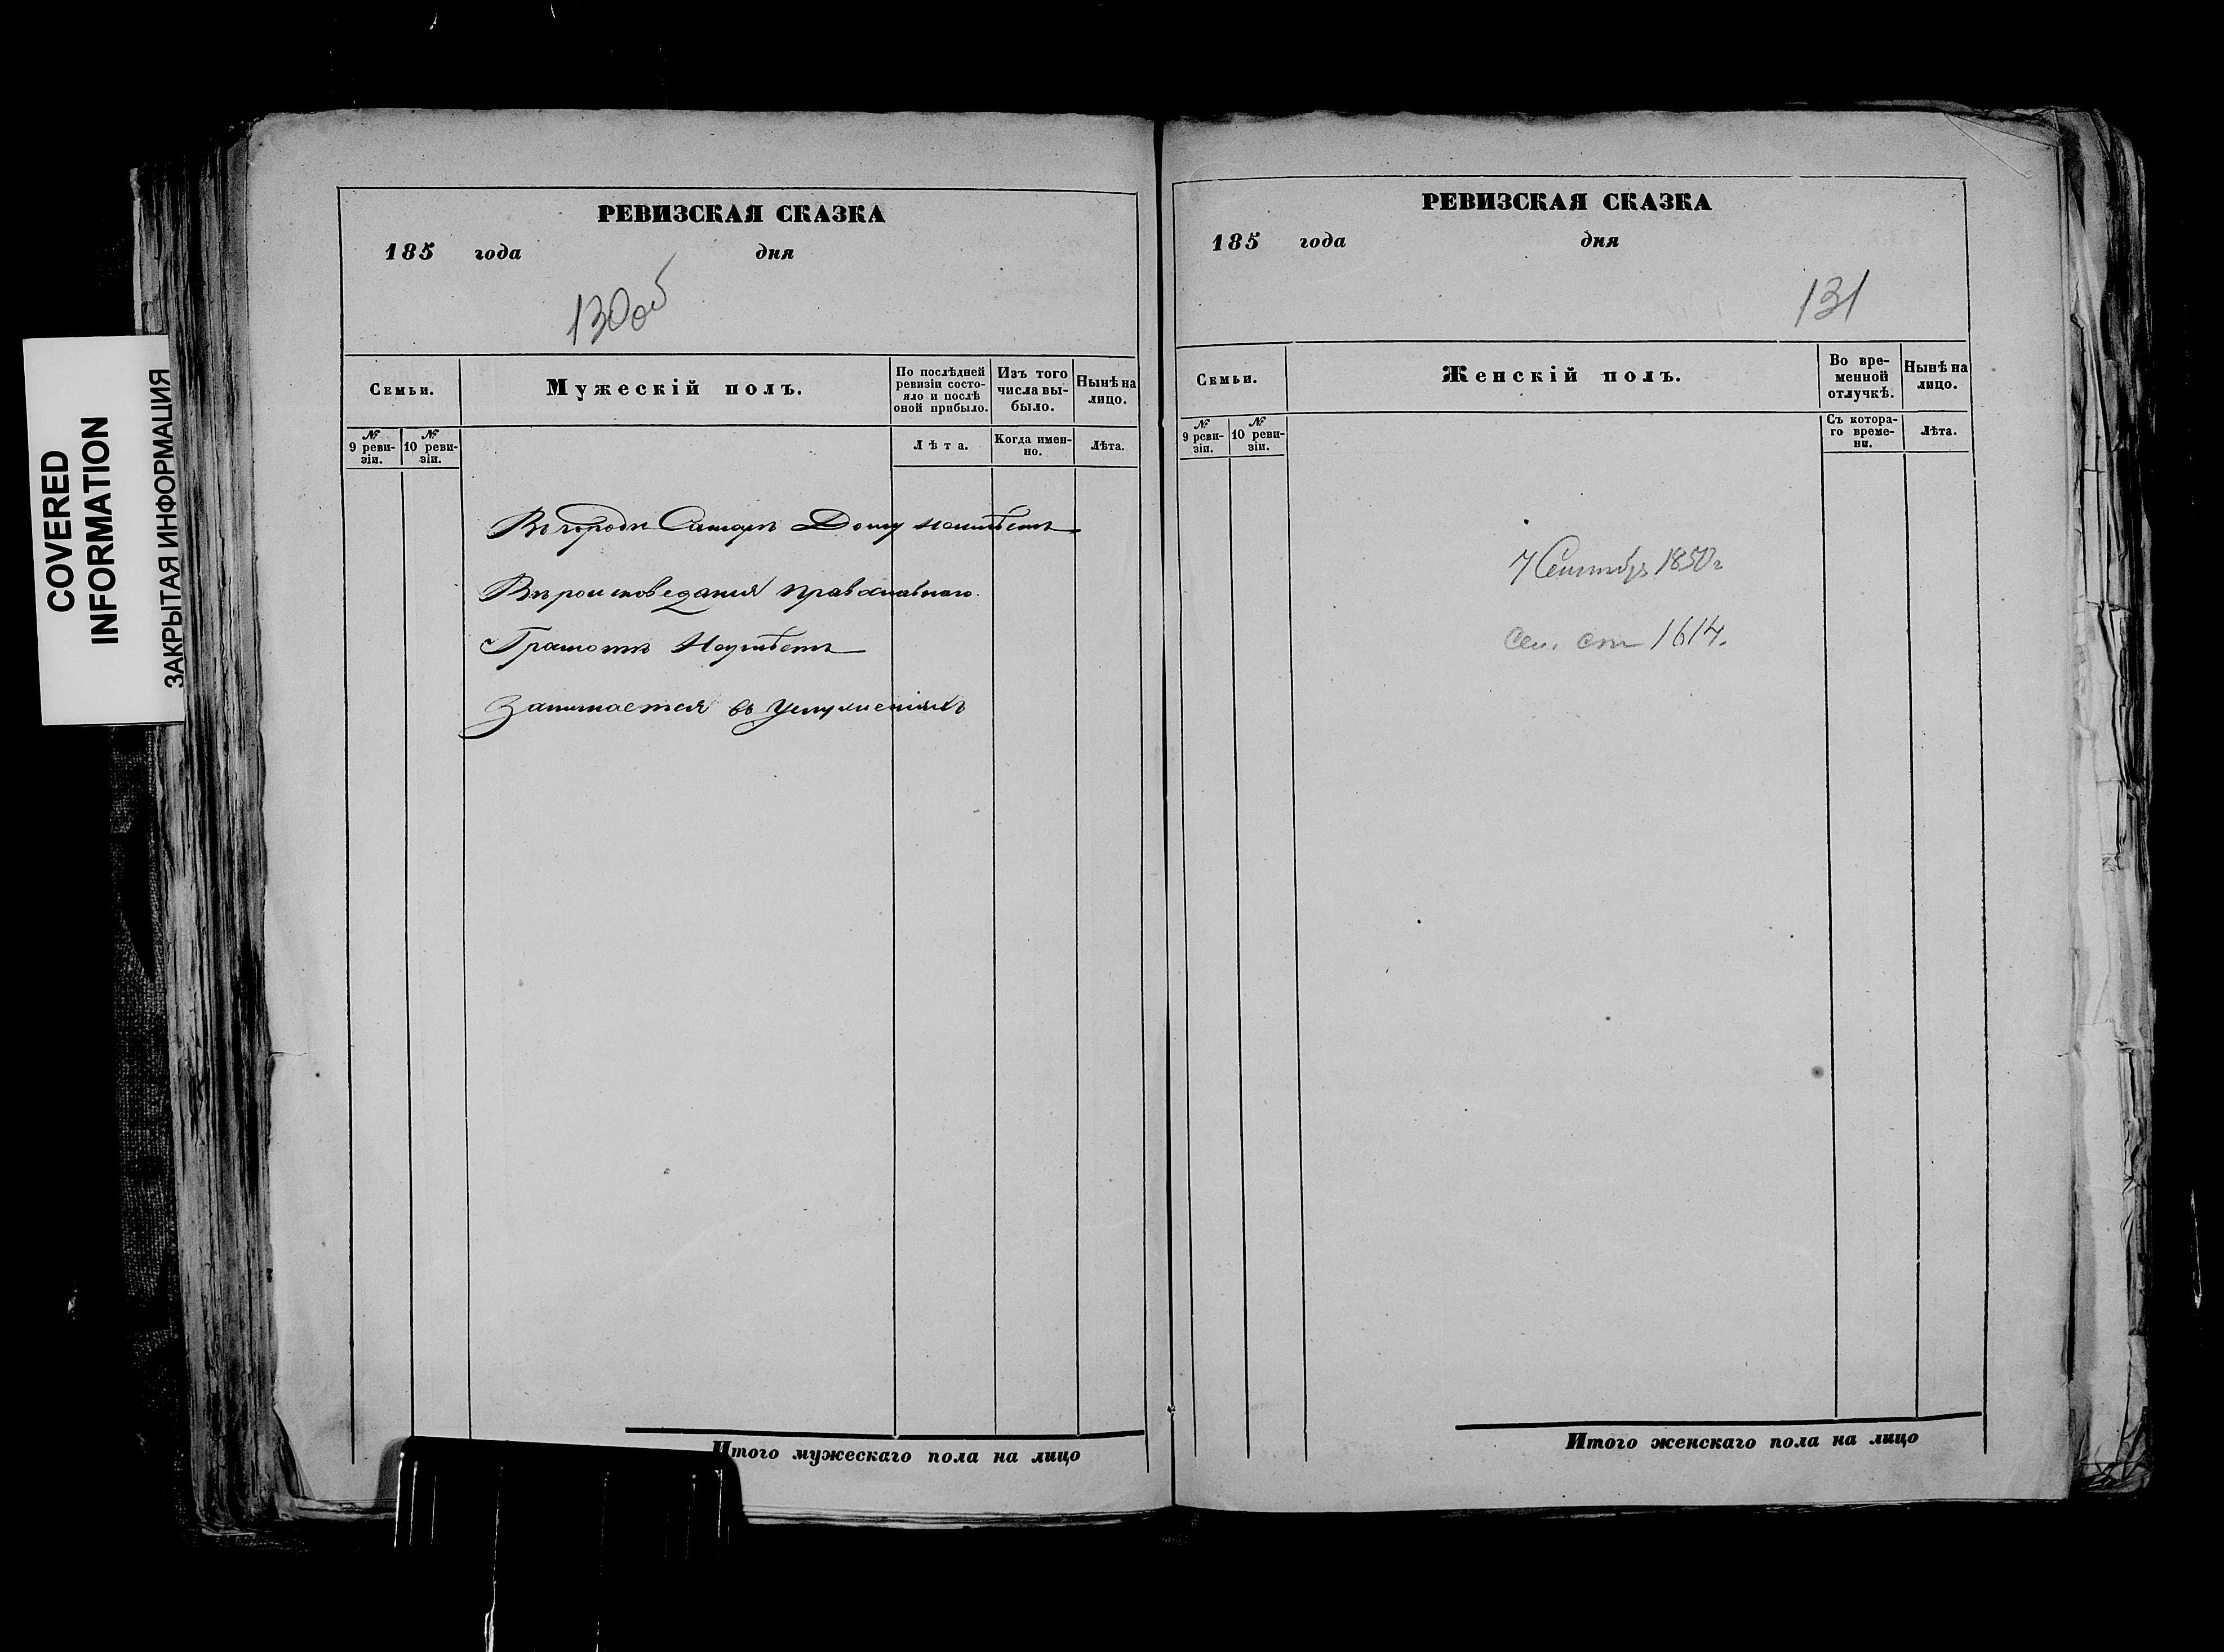 COVERED
INFORMATION
ЗАКРЫТАЯ ИНФОРМАЦИЯ
РЕВИЗСКАЯ СКАЗКА
185 года дня
130об
Семьи.
Мужескій полъ.
По послѣдней
ревизіи состо-
яло и послѣ
оной прибыло.
Изъ того
числа вы-
было.
Нынѣ на
лицо.
№
9 реви-
зіи.
№
10 реви-
зіи.
Лѣта.
Когда имен-
но.
Лѣта.
Въ городѣ Самарѣ Дому неимѣетъ
Вѣроисповеданія православнаго.
Грамотѣ Неумѣетъ
Занимается въ услуженіяхъ
Итого мужескаго пола на лицо
РЕВИЗСКАЯ СКАЗКА
185 года дня
131
Семьи.
Женскій полъ.
Во вре-
менной
отлучкѣ.
Нынѣ на
лицо.
№
9 реви-
зіи.
№
10 реви-
зіи.
Съ котора-
го време-
ни.
Лѣта.
7 Сентября 1850 г
ст 1614.
Итого женскаго пола на лицо